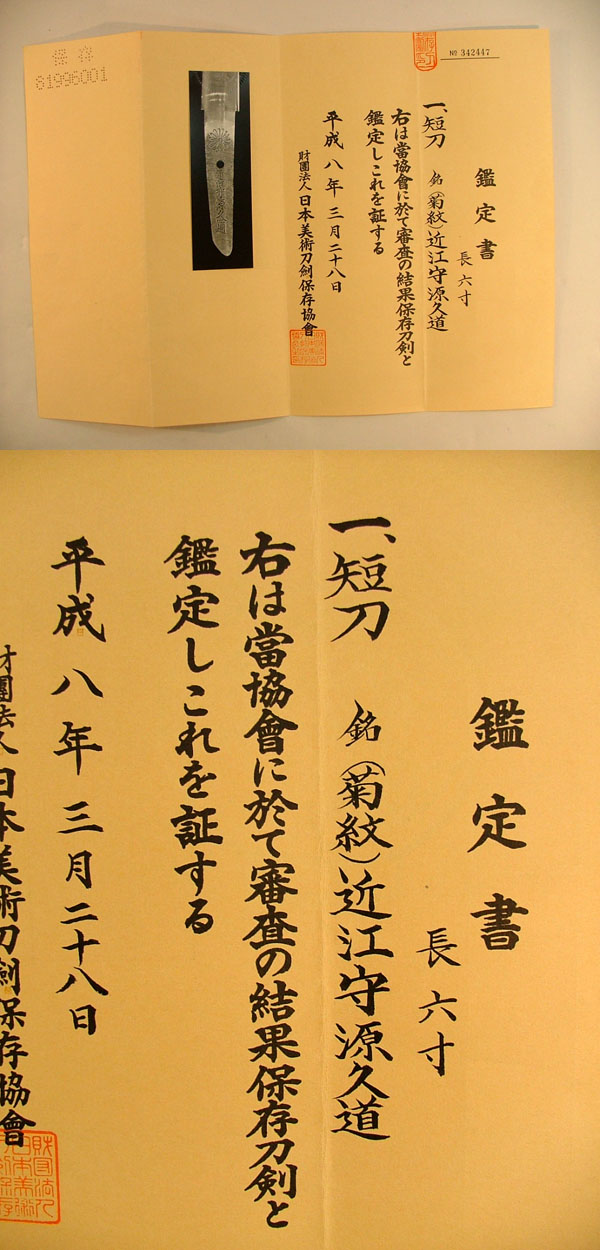 保存
81996001
№ 342447
鑑定書
長六寸
一、短刀 銘(菊紋)近江守源久道
右は當協會に於て審査の結果保存刀剣と
鑑定しこれを証する
平成八年三月二十八日
財團法人日本美術刀劍保存協會
鑑定書
長六寸
一、短刀 銘(菊紋)近江守源久道
右は當協會に於て審査の結果保存刀剣と
鑑定しこれを証する
平成八年三月二十八日
財團法人日本美術刀劍保存協會